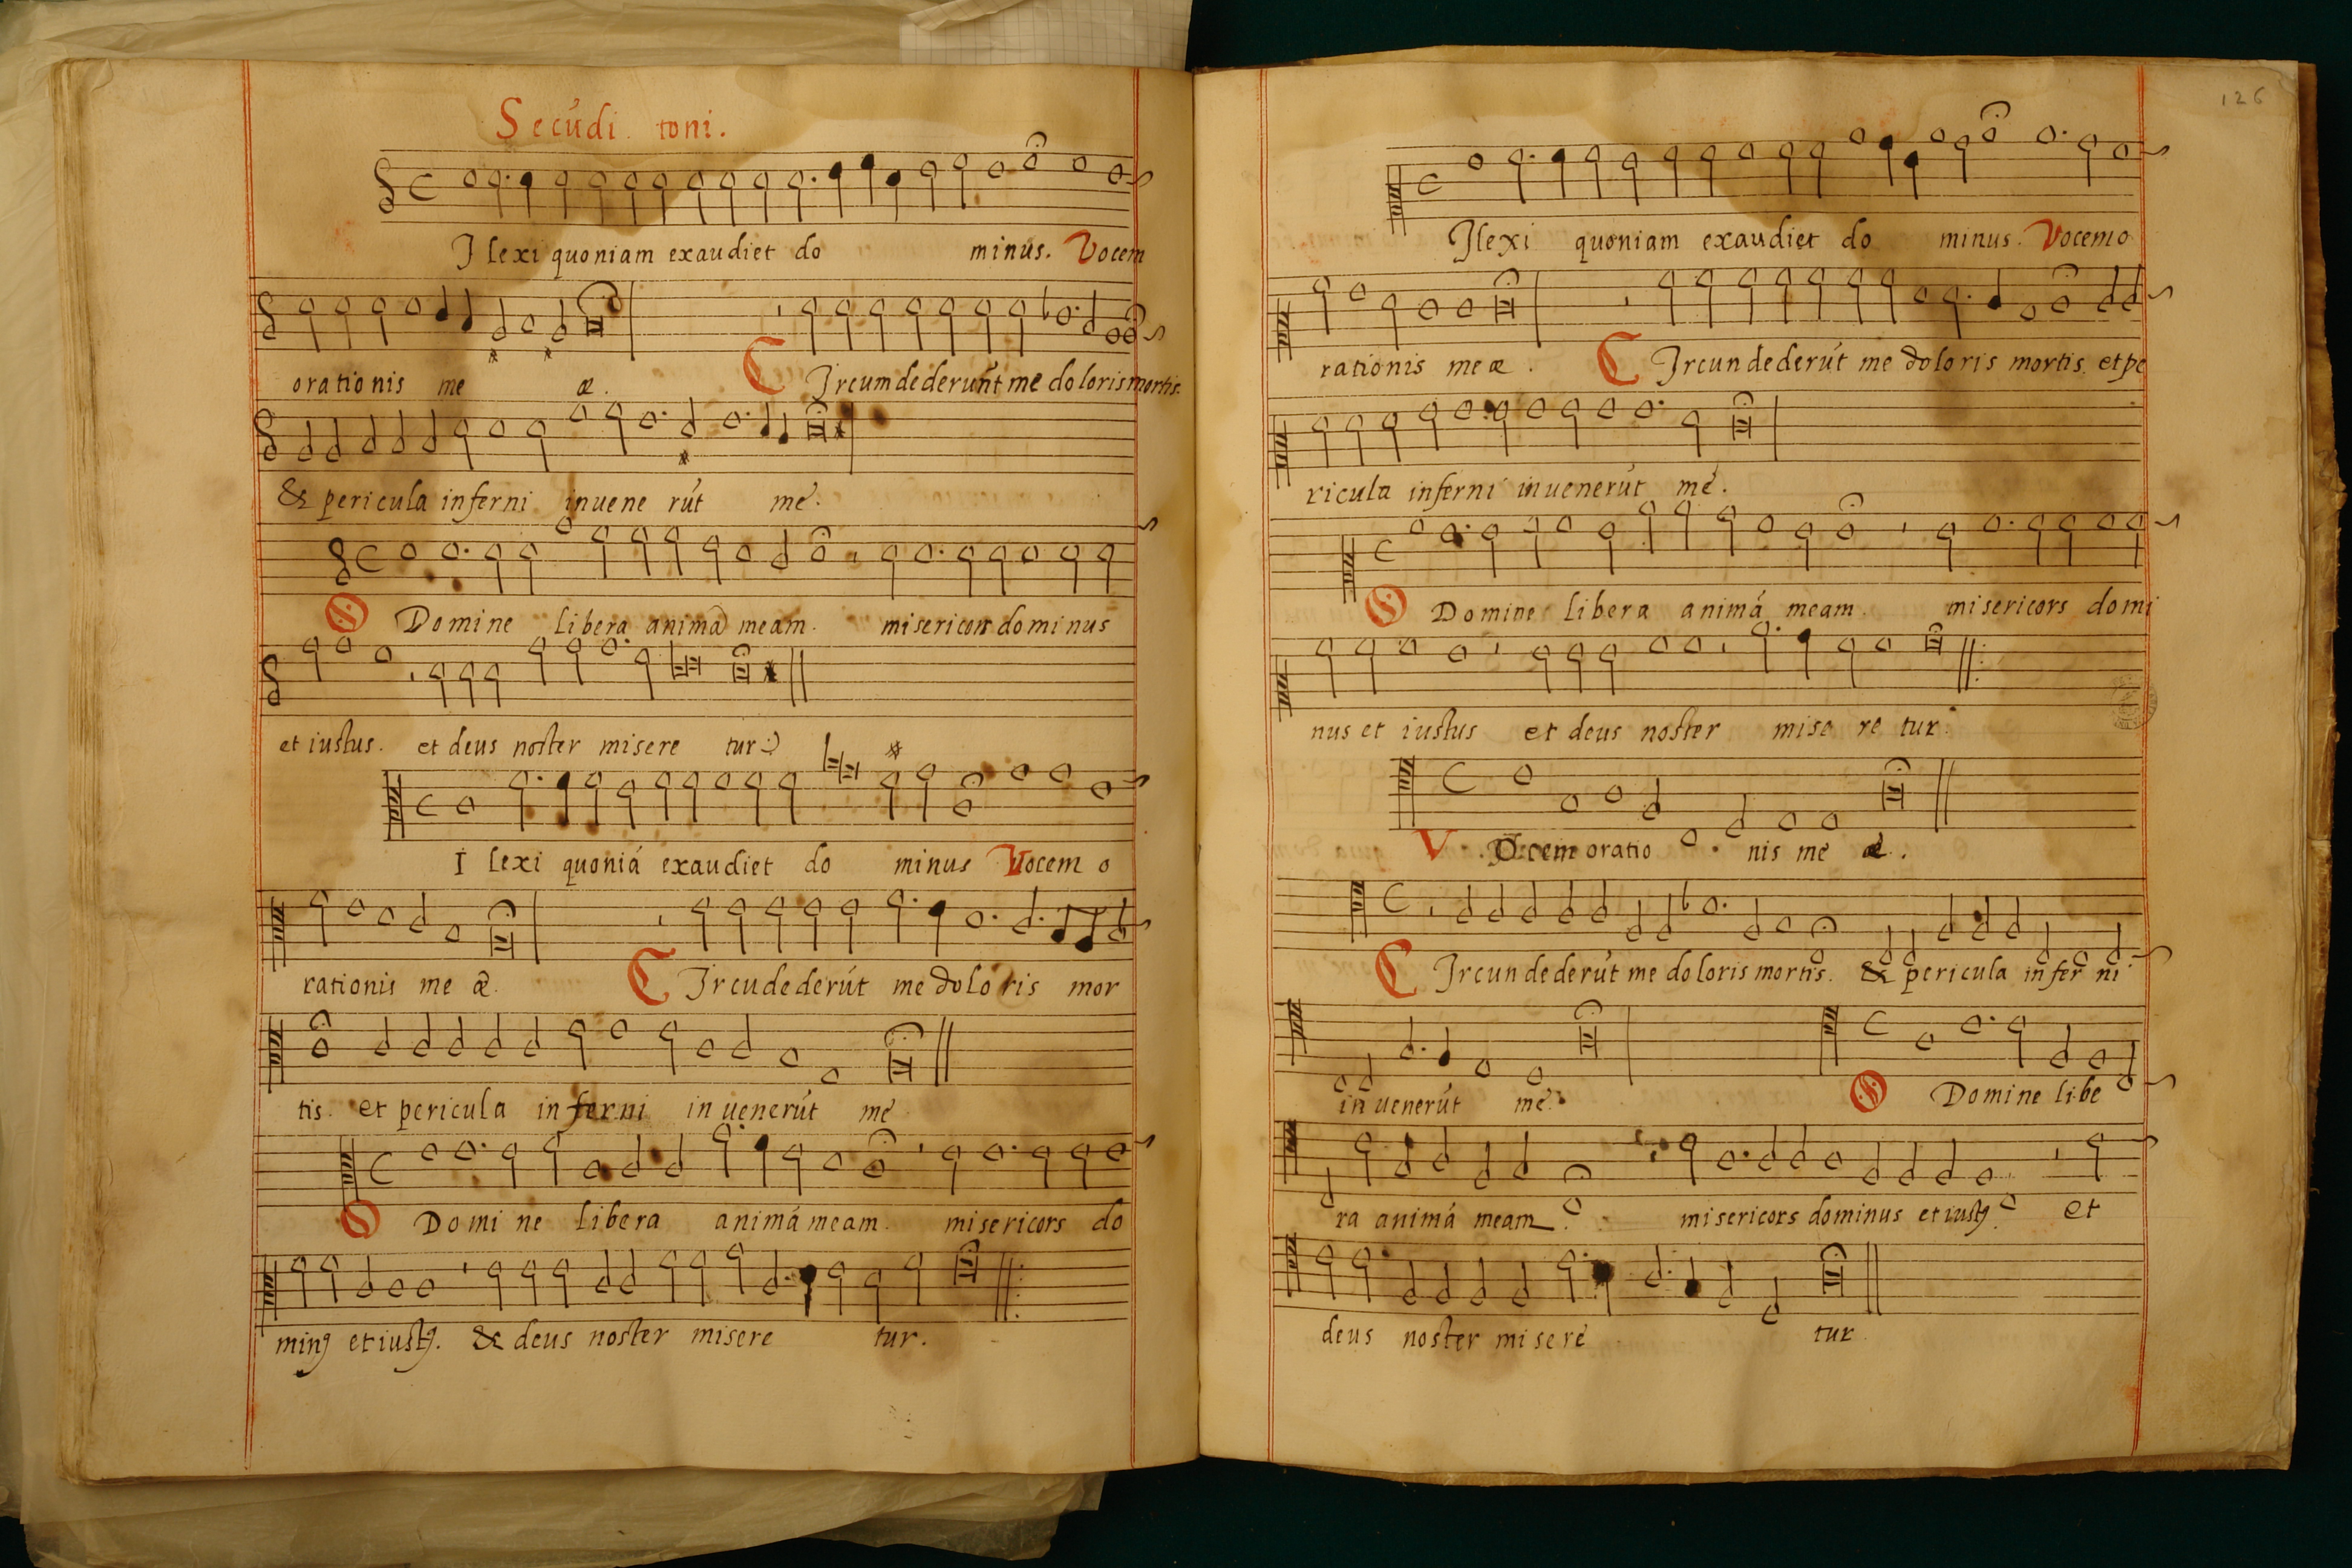 Secúdi toni.
Ilexi quoniam exaudiet do minus. Vocem
orationis me æ. Circumdederunt me doloris mortis.
& pericula inferni inuene rút me.
O Domine libera animā meam. misericors dominus
et iustus. et deus noster misere tur
I lexi quoniá exaudiet do minus Vocem o
rationis me æ. Circúdederút me doloris mor
tis. et pericula inferni inuenerút me
O Domine libera animá meam. misericors do
minꝯ et iustꝯ. & deus noster misere tur.
126
Ilexi quoniam exaudiet do minus. Vocem o
rationis meæ. Circundederút me doloris mortis. et pe
ricula inferni inuenerút me.
O Domine libera animá meam. misericors domi
nus et iustus et deus noster mise re tur.
Vocem oratio nis me æ.
Circundederút me doloris mortis. & pericula infer ni
inuenerút me. O Domine libe
ra animá meam. misericors dominus et iustꝯ. et
deus noster misere tur.